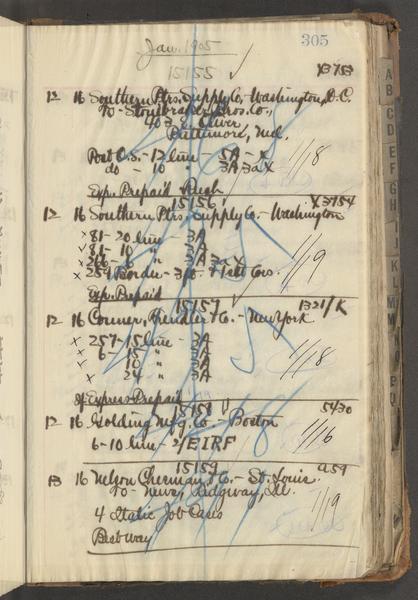 Jan. 1905
305
15155 ✓
X3753
12 16 Southern Ptrs. Supply Co, Washington, D.C.
To - Stonebraker Bros. Co.,
Baltimore, Md.
Post O.S. - 12 line - 5A - X
do - 10 " 3A 3a X
1/18
Exp. Prepaid Rush
15156 X3754
12 16 Southern Ptrs. Supply Co - Washington
x 81 - 20 line - 3A
✓ 81 - 10 " 3A
x 266 - 6 " 3A 3a X
1/19
x 259 Border - 3/0.
Exp. Prepaid
15157 1321/K
12 16 Conner, Fendler & Co. - New York
x 257 - 15 line - 3A
x 6 - 15 " 3A
✓ 10 " 3A
x 24 " 3A
1/18
Express Prepaid
15158 5430
12 16 Golding Mfg. Co. - Boston
1/16
6 - 10 line - 2/EIRF
15159 A59
13 16 Nelson Chesman & Co. - St. Louis.
To - News, Ridgway, Ill.
1/19
4 Italic Job Cases
Best way
A
B
C
D
E
F
G
H
I
J
K
L
M